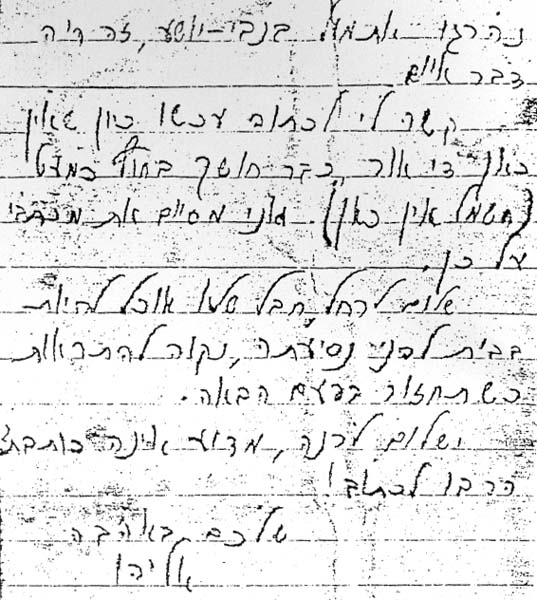 נהרגו אתמול בנבי-יושע, זה היה
דבר איום.
קשה לי לכתוב עכשו כיון שאין
כאן די אור, כבר חושך בחוץ כמעט
(חשמל אין כאן). אני מסיים את מכתבי
על כן.
שלום לרחל, חבל שלא אוכל להיות
בבית לפני נסיעתה, נקוה להתראות
כשתחזור בפעם הבאה.
שלום לרנה, מדוע אינה כותבת?
הרבו לכתוב!
שלכם באהבה
אליהו